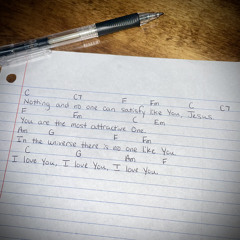 C C7 F Fm C C7
Nothing and no one can satisfy like You, Jesus.
F Fm C Em
You are the most attractive One.
Am G F Fm
In the universe there is no one like You
C G Am F
I love You, I love You, I love You